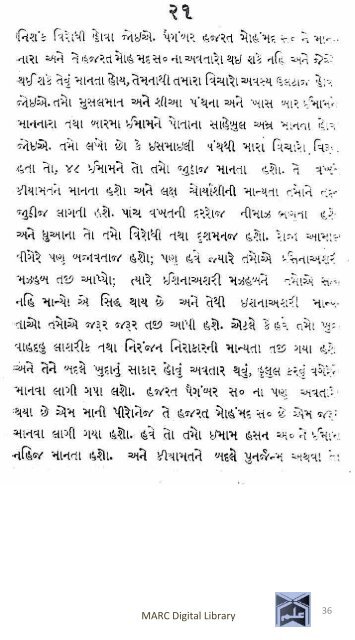 ૨૧
નિશંક વિરોધી હોવા જોઇએ. પૈગંબર હજરત મોહંમદ સ૦ ને માન-
નારા અને તે હજરત મોહંમદ સ૦ ના અવતારો થઇ શકે નહિ અને જેઓ
થઇ શકે તેવું માનતા હોય, તેમનાથી તમારા વિચારો અવસ્ય ઉલટાજ હોવ
જોઇએ. તમો મુસલમાન અને શીઆ પંથના અને ખાસ બાર ઇમામને
માનનારા તથા બારમા ઇમામને પોતાના સાહેબુલ અમ્ર માનતા હોવ
જોઇએ. તમો લખો છો કે ઇસમાઇલી પંથથી મારાં વિચારો
હતા તો, ૪૮ ઇમામને તો તમો જુઠ્ઠાજ માનતા હશો. તે વખતે
કીયામતને માનતા હશો અને લક્ષ ચોર્યાશીની માન્યતા તમોને તદ્દન
જુઠીજ લાગતી હશે. પાંચ વખતની દરરોજ નીમાઝ ભણતા હશો
અને ધુઆના તો તમો વિરોધી તથા દુશમનજ હશો. રોજા આમાલ
વીગેરે પણ બજાવતાજ હશો; પણ હવે જ્યારે તમોએ ઇસિનાઅશરી
મઝહબ તજી આપ્યો; ત્યારે ઇશિનાઅશરી મઝહબને તમોએ સત્ય
નહિ માન્યો એ સિદ્ધ થાય છે અને તેથી ઇશનાઅશરી માન્ય
તાઓ તમોએ જરૂર જરૂર તજી આપી હશે. એટલે કે હવે તમો ખુદા
વાહદહુ લાશરીક તથા નિરંજન નિરાકારની માન્યતા તજી ગયા હશો
અને તેને બદલે ખુદાનું સાકાર હોવું અવતાર થવું, હુલુલ કરવું વગેરે
માનવા લાગી ગયા હશો. હજરત પૈગંબર સ૦ ના પણ અવતાર
થયા છે એમ માની પીરોનેજ તે હજરત મોહંમદ સ૦ છે એમ જરૂર
માનવા લાગી ગયા હશો. હવે તો તમો ઇમામ હસન અ૦ ને ઇમામ
નહિજ માનતા હશો. અને કીયામતને બદલે પુનર્જન્મ અથવા
MARC Digital Library
36